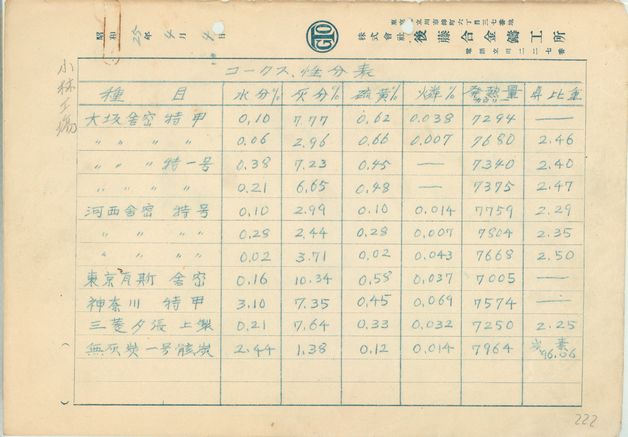 昭和25年4月4日
GTO
東京立川市錦町六丁目三七番地
株式會社 後藤合金鑄工所
電話立川二二七番
小林工場
コークス、性分表
種目 水分% 灰分% 硫黄% 燐% 発熱量 カロリー 真比重
大坂舎密 特甲 0.10 7.77 0.62 0.038 7294 —
〃 〃 〃 〃 0.06 2.96 0.66 0.007 7680 2.46
〃 〃 〃 特一号 0.38 7.23 0.45 — 7340 2.40
〃 〃 〃 〃 0.21 6.65 0.48 — 7375 2.47
河西舎密 特号 0.10 2.99 0.10 0.014 7759 2.29
〃 〃 〃 〃 0.28 2.44 0.28 0.007 7804 2.35
〃 〃 〃 〃 0.02 3.71 0.02 0.043 7668 2.50
東京瓦斯 舎密 0.16 10.34 0.58 0.037 7005 —
神奈川 特甲 3.10 7.35 0.45 0.069 7574 —
三菱夕張 上製 0.21 7.64 0.33 0.032 7250 2.25
無灰炭一号骸炭 2.44 1.38 0.12 0.014 7964 炭素 96.06
222